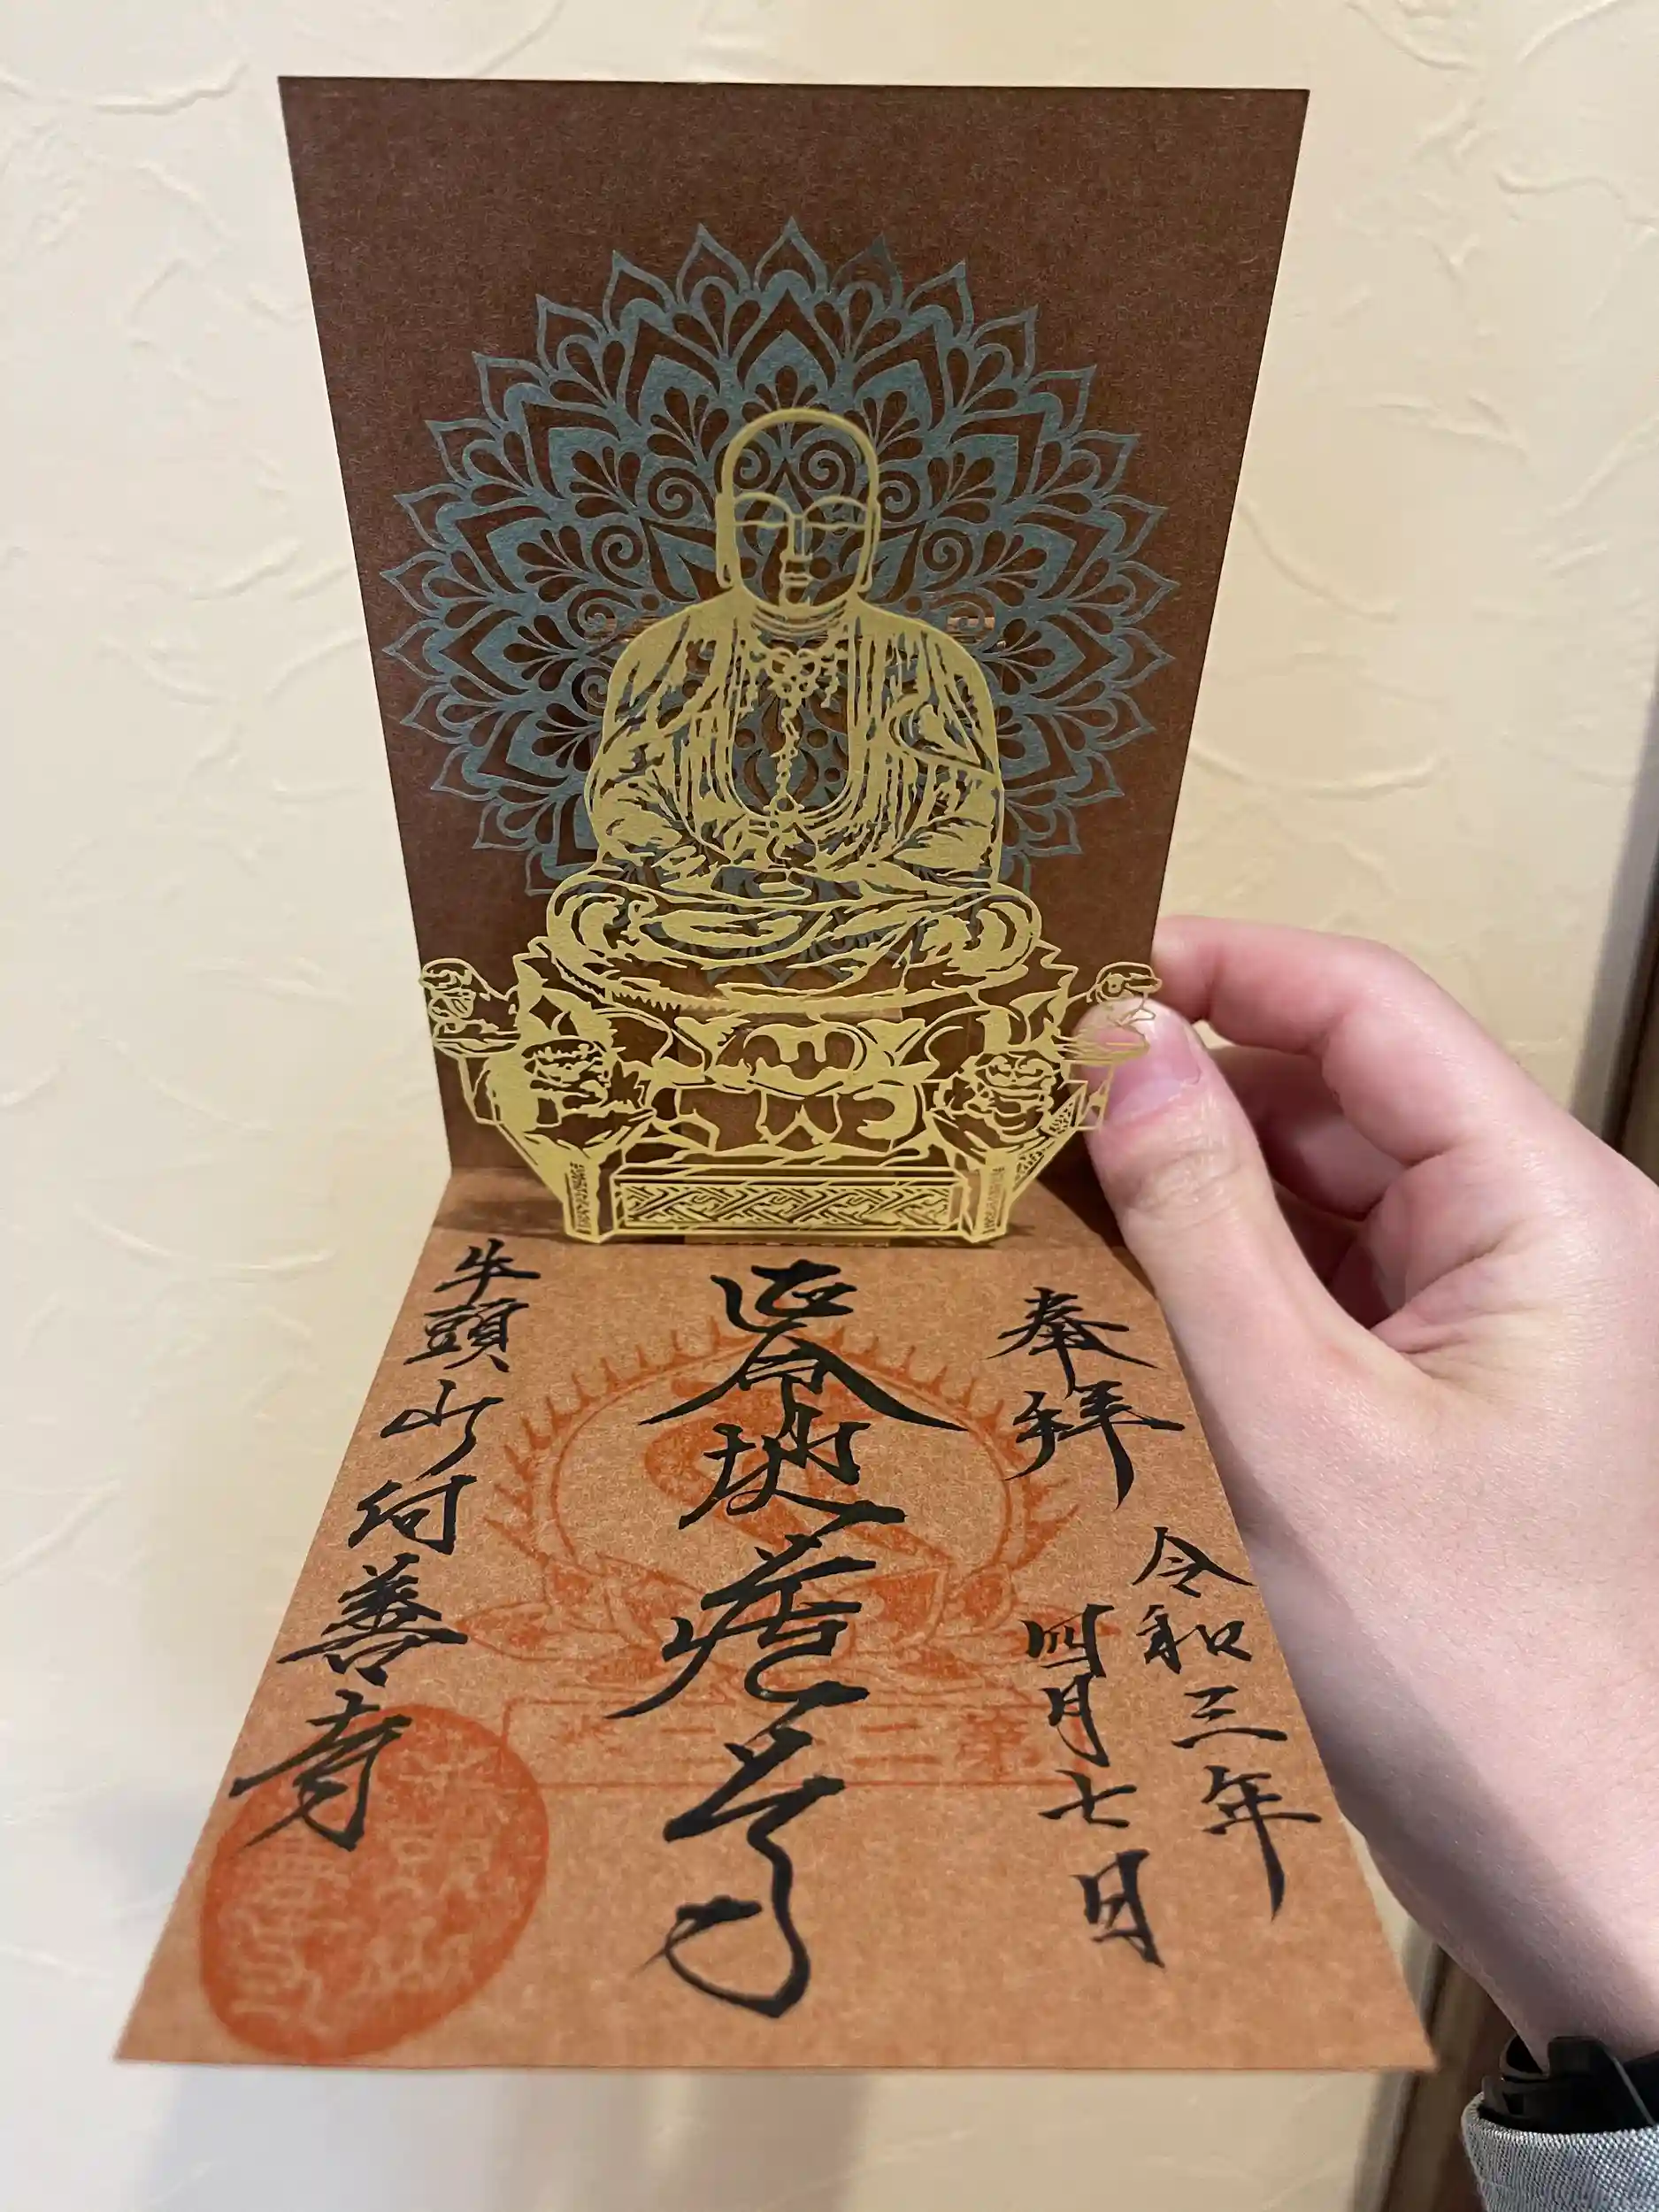 奉拝
令和三年
四月七日
延命地蔵尊
牛頭山 善寺